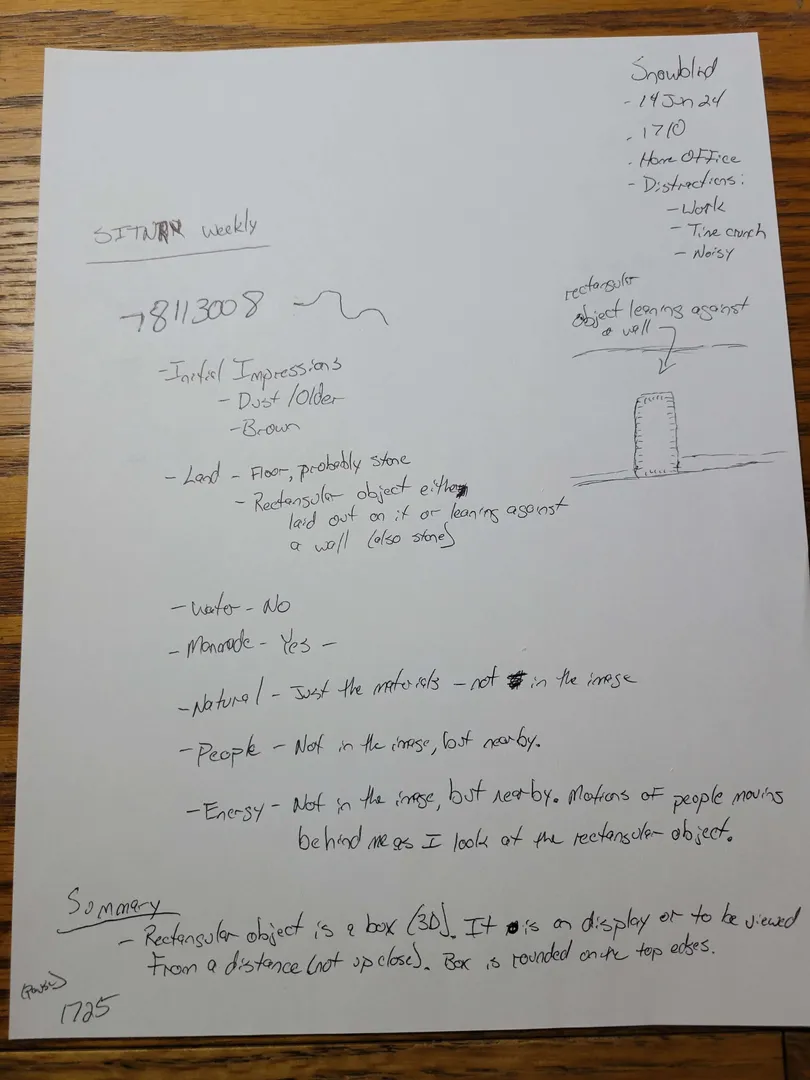 Snowblind
- 14 Jun 24
- 1710
- Home Office
- Distractions:
- Work
- Time crunch
- Noisy
weekly
78113008
rectangular
object leaning against
a wall
- Initial Impressions
- Dust / Older
- Brown
- Land - Floor, probably stone
- Rectangular object either
laid out on it or leaning against
a wall (also stone)
- Water - No
- Manmade - Yes -
- Natural - Just the materials - not in the image
- People - Not in the image, but nearby.
- Energy - Not in the image, but nearby. Motions of people moving
behind me as I look at the rectangular object.
Summary
- Rectangular object is a box (3D). It is on display or to be viewed
from a distance (not up close). Box is rounded on the top edges.
(Pause)
1725